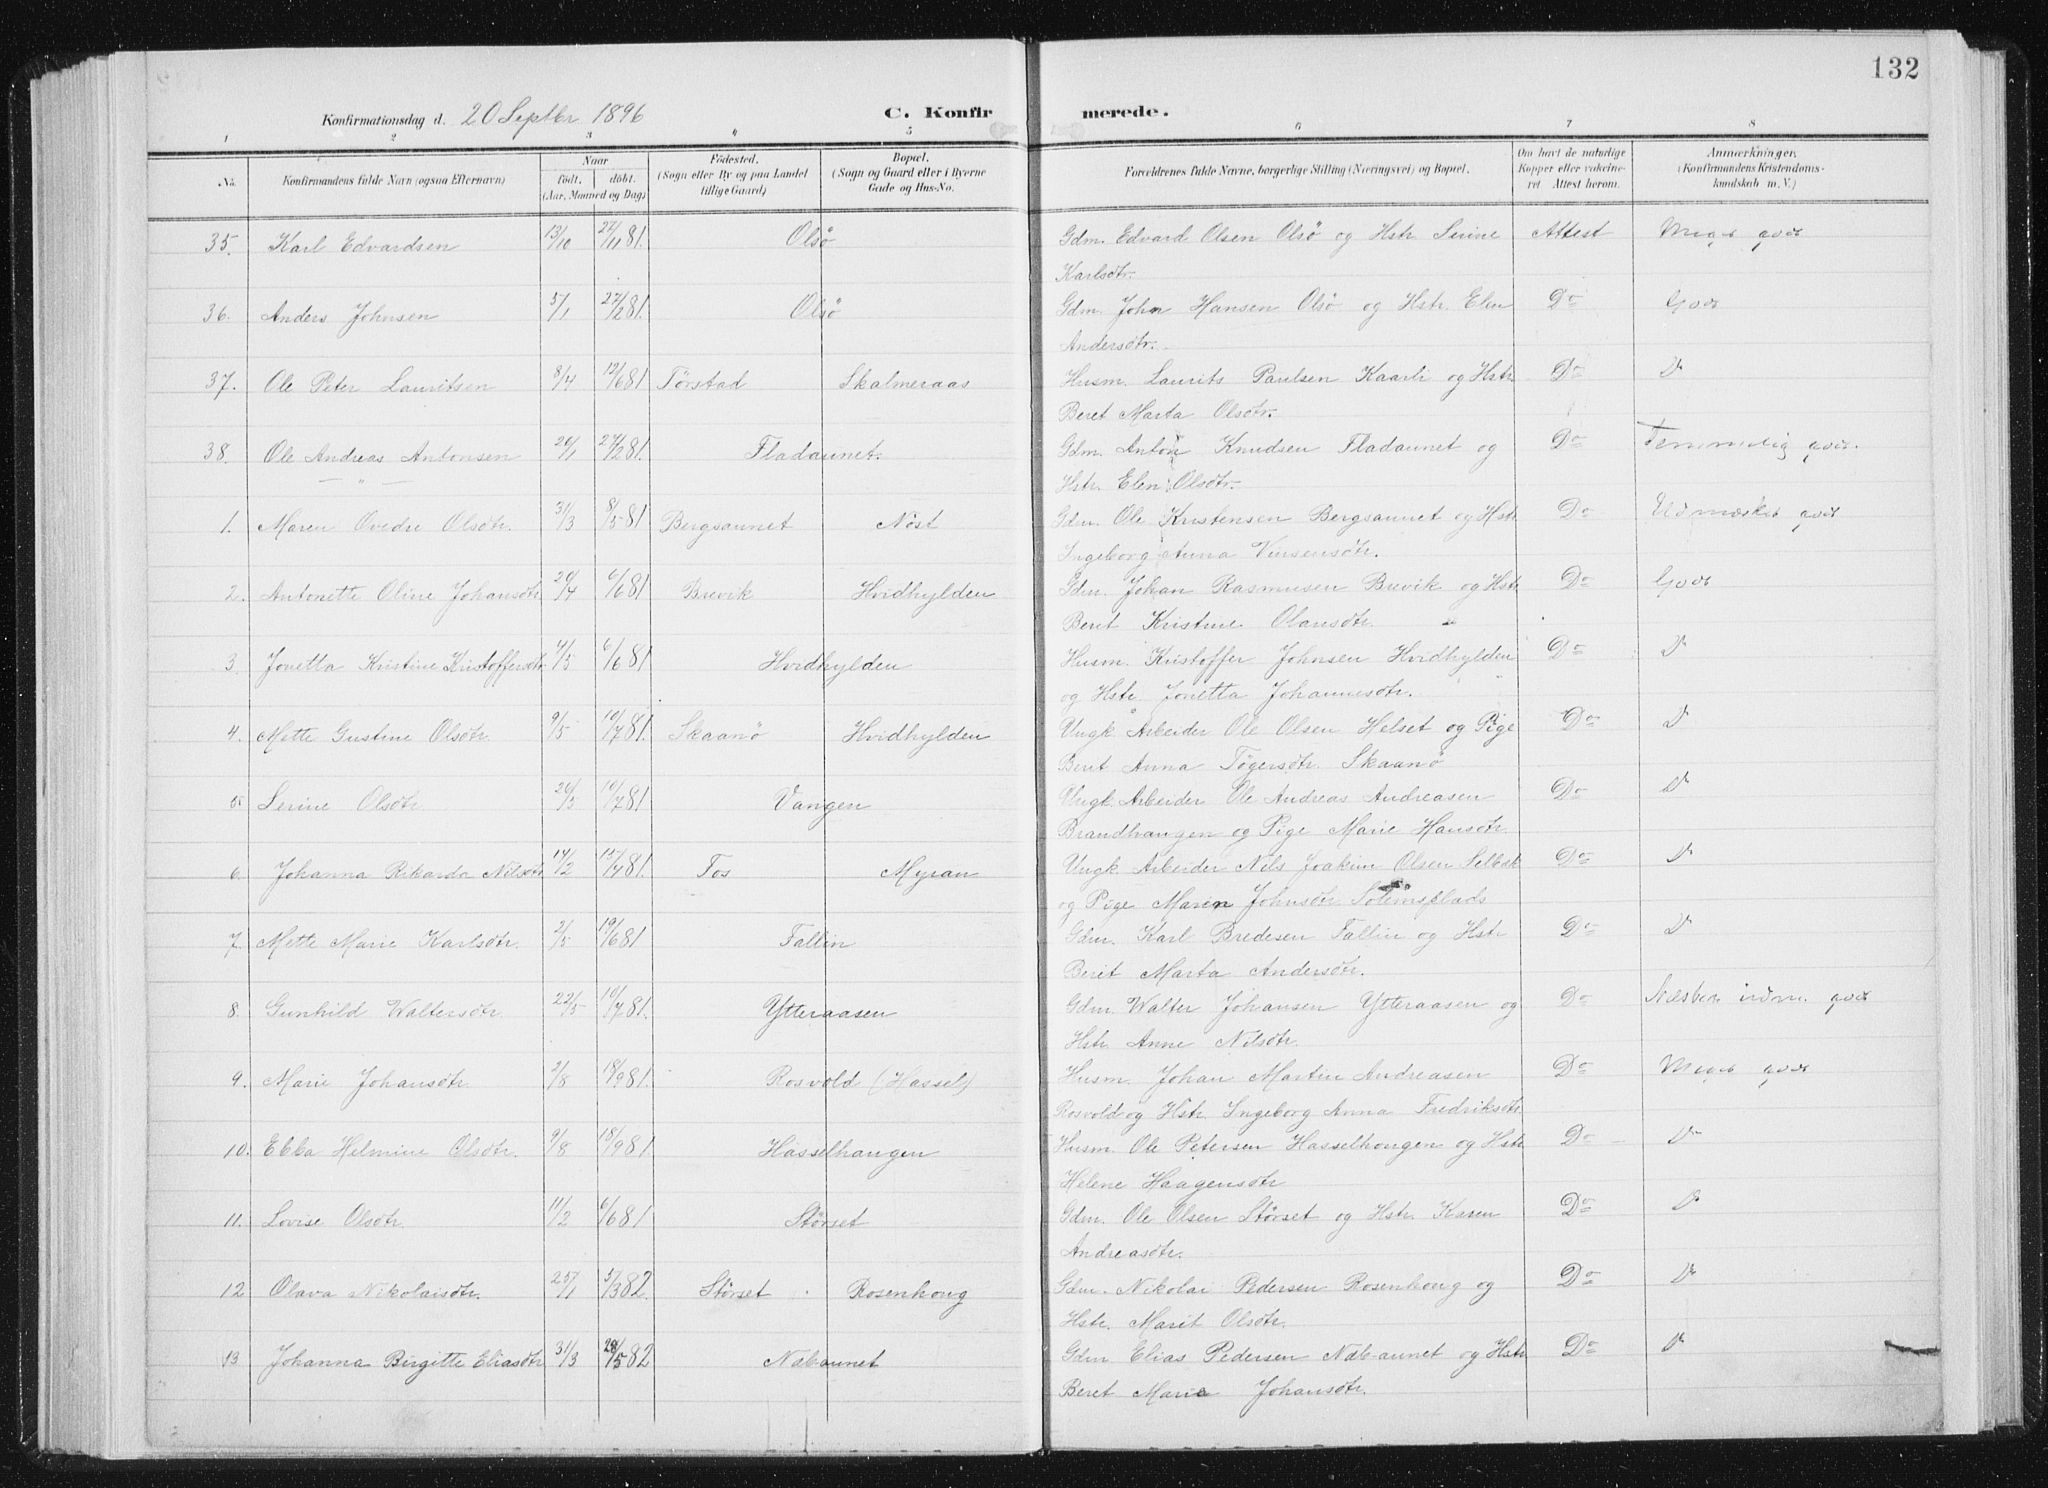 132
Konfirmationsdag d. 20 Septbr 1896 C. Konfirmerede.
1 2 3 4 5 6 7 8
No. Konfirmandens fulde Navn (ogsaa Efternavn) Naar födt. döbt. (Aar, Maaned og Dag) Födested. (Sogn eller By og paa Landet tillige Gaard) Bopæl. (Sogn og Gaard eller i Byerne Gade og Hus-No. Forældrenes fulde Navne, borgerlige Stilling (Næringsvei) og Bopæl. Om havt de naturlige Kopper eller vakcineret Attest herom. Anmærkninger. (Konfirmandens Kristendomskundskab m. V.)
35. Karl Edvardsen 13/10 27/11 81. Olsö Gdm. Edvard Olsen Olsö og Hstr Serine Attest Meget godt
Karlsdtr.
36. Anders Johnsen 5/1 27/2 81. Olsö Gdm. John Hansen Olsö og Hstr. Elen Do Godt
Andersdtr.
37. Ole Peter Lauritsen 8/4 12/6 81 Törstad Skalmeraas Husm. Laurits Paulsen Kaarli og Hstr Do Do
Beret Marta Olsdtr.
38. Ole Andreas Antonsen 20/1 27/2 81. Fladaunet. Gdm. Anton Knudsen Fladaunet og Do Temmelig godt.
— " — Hstr. Elen Olsdtr.
1. Maren Ovedre Olsdtr. 31/3 8/5 81 Bergsaunet Nöst Gdm. Ole Kristensen Bergsaunet og Hstr Do Udmærket godt
Ingeborg Anna Vinsensdtr.
2. Antonette Oline Johansdtr 20/4 6/6 81. Brevik Hvidhylden Gdm. Johan Rasmusen Brevik og Hstr Do Godt
Beret Kristine Olausdtr.
3. Jonetta Kristine Kristoffersdtr 4/5 6/6 81 Hvidhylden Husm. Kristoffer Johnsen Hvidhylden Do Do
og Hstr. Jonetta Johannesdtr.
4. Mette Gustine Olsdtr. 9/5 10/7 81. Skaanö Hvidhylden Ungk. Arbeider Ole Olsen Helset og Pige Do Do
Beret Anna Tögersdtr. Skaanö
5 Serine Olsdtr. 20/5 10/7 81 Vangen Ungk. Arbeider Ole Andreas Andreasen Do Do
Brandhaugen og Pige Marie Hansdtr.
6. Johanna Rikarda Nilsdtr 14/2 15/4 81. Fos Myran Ungk Arbeider Nils Joakim Olsen Selbæk Do Do
og Pige Maren Johnsdtr. Solemsplads
7. Mette Marie Karlsdtr. 2/5 19/6 81 Fallin Gdm. Karl Bredesen Fallin og Hstr Do Do
Berit Marta Andersdtr.
8. Gunhild Waltersdtr. 22/5 10/7 81. Ytteraasen Gdm. Walter Johansen Ytteraasen og Do Næsten udm. godt
Hstr. Anne Nilsdtr.
9. Marie Johansdtr. 2/8 18/9 81. Rosvold (Hassel) Husm. Johan Martin Andreasen Do Meget godt
Rosvold og Hstr. Ingeborg Anna Fredriksdtr.
10. Ebba Helmine Olsdtr. 9/8 18/9 81. Hasselhaugen Husm. Ole Petersen Hasselhaugen og Hstr Do Do
Helene Haagensdtr
11. Lovise Olsdtr. 11/2 6/6 81 Störset Gdm. Ole Olsen Störset og Hstr. Karen Do Do
Andreasdtr.
12 Olava Nikolaisdtr. 25/1 5/3 82. Störset Rosenhoug Gdm. Nikolai Pedersen Rosenhoug og Do Do
Hstr. Marit Olsdtr.
13 Johanna Birgitte Eliasdtr 31/3 28/5 82 Næb-aunet Gdm Elias Pedersen Næb-aunet og Hstr Do Do
Beret Marie Johansdtr.